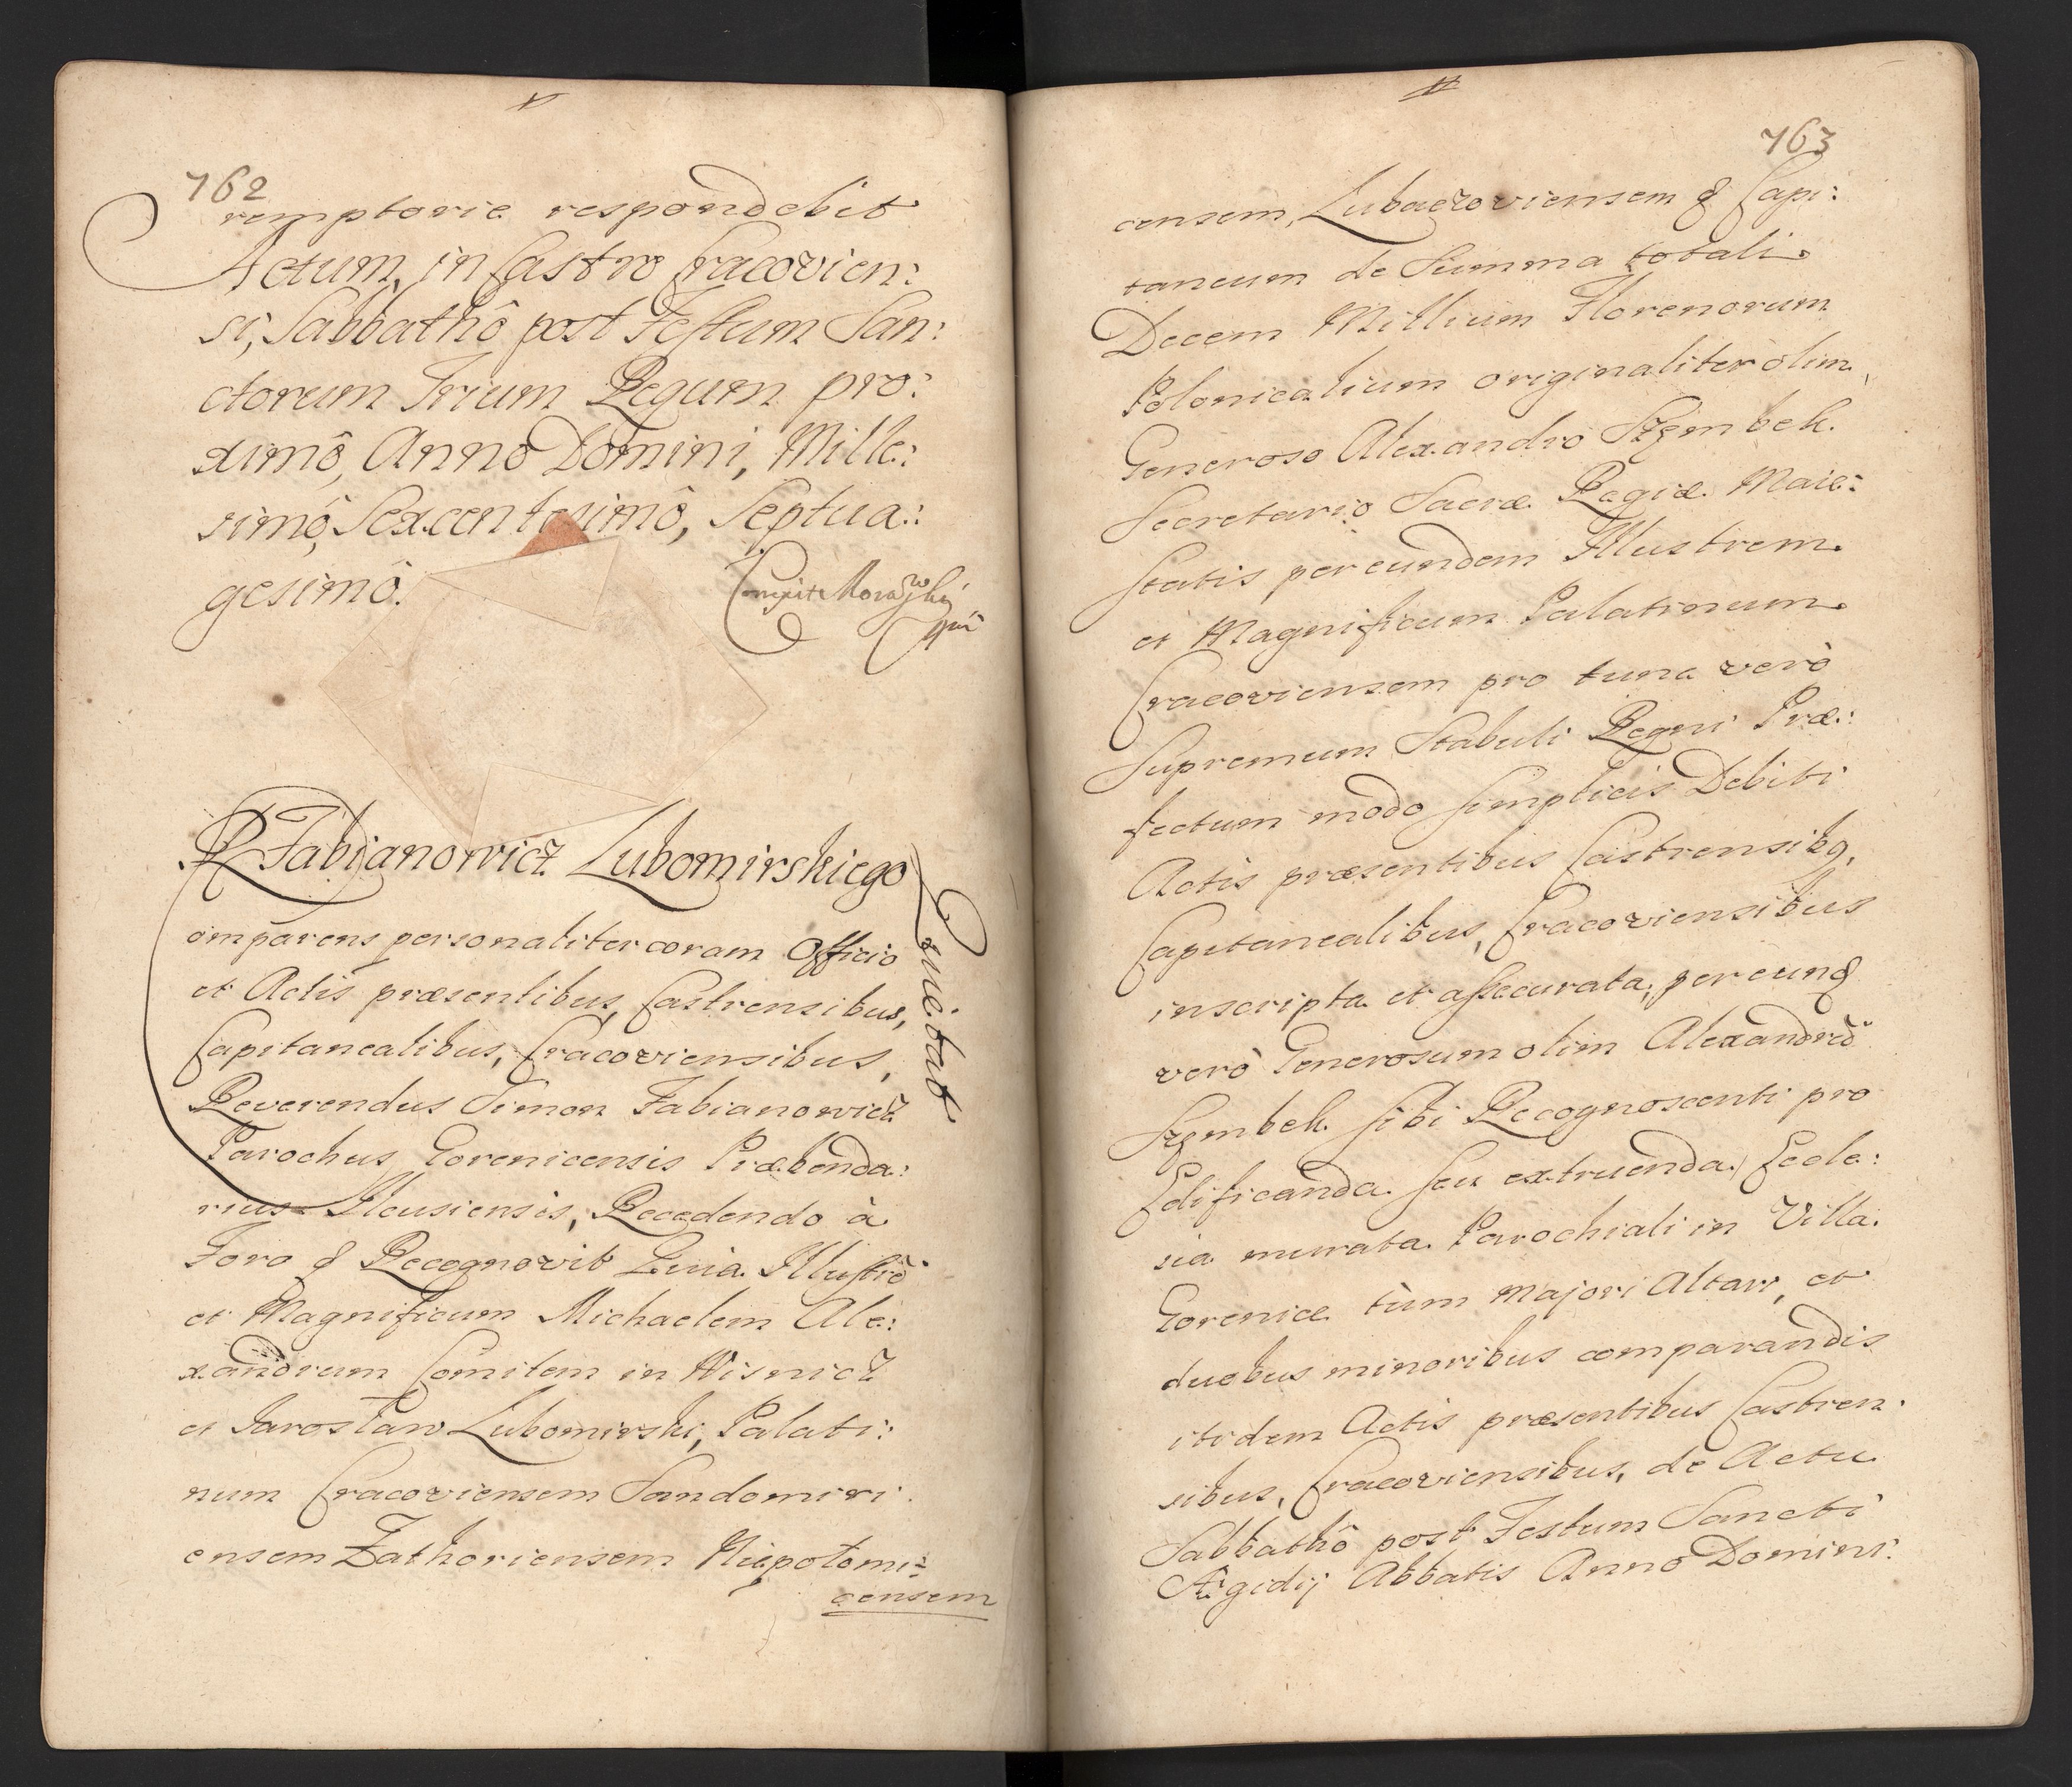 762
remptorie respondebit
Actum, in Castro Cracovien:
si, Sabbathô post Festum San:
ctorum Trium Regum pro:
ximô, Annô Domini, Mille:
simô, Sexcentesimô, Septua:
gesimô.
R Fabijanowicz Lubomirskiego
Quietat
omparens personaliter coram Officio
et Actis præsentibus, Castrensibus,
Capitanealibus, Cracoviensibus,
Reverendus Simon Fabianowicz
Parochus Gorenicensis Præbenda:
rius Ilcusiensis, Recedendo à
Foro & Recognovit Quia Illustrē
et Magnificum Michaelem Ale:
xandrum Comitem in Wisnicz
et Jaroslaw Lubomirski, Palati:
num Cracoviensem Sandomiri:
ensem Zathoriensem Niepolomi:
censem
763
censem, Lubaczoviensem & Capi:
taneum de Summa totali
Decem Millium Florenorum
Polonicalium originaliter olim
Generoso Alexandro Szembek
Secretario Sacræ Regiæ Maie:
statis per eundem Illustrem
et Magnificum Palatinum
Cracoviensem pro tunc verò
Supremum Stabuli Regni Præ:
fectum modo simplicis Debiti
Actis præsentibus Castrensibq,
Capitanealibus, Cracoviensibus
inscripta et assecurata, per eund
verò Generosum olim Alexandrū
Szembek sibi Recognoscenti pro
Edificanda seu extruenda Eccle:
sia murata Parochiali in Villa
Gorenice tùm Majori Altari, et
duobus minoribus comparandis
itidem Actis præsentibus Castren:
sibus, Cracoviensibus, de Actu
Sabbathô post Festum Sancti
Ægidij Abbatis Anno Domini